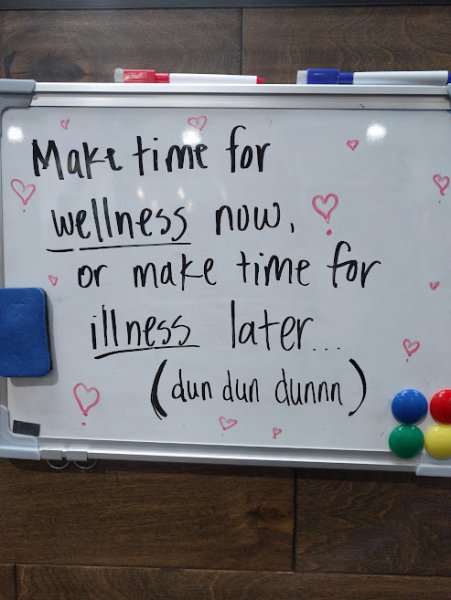 Make time for
wellness now,
or make time for
illness later...
(dun dun dunnn)